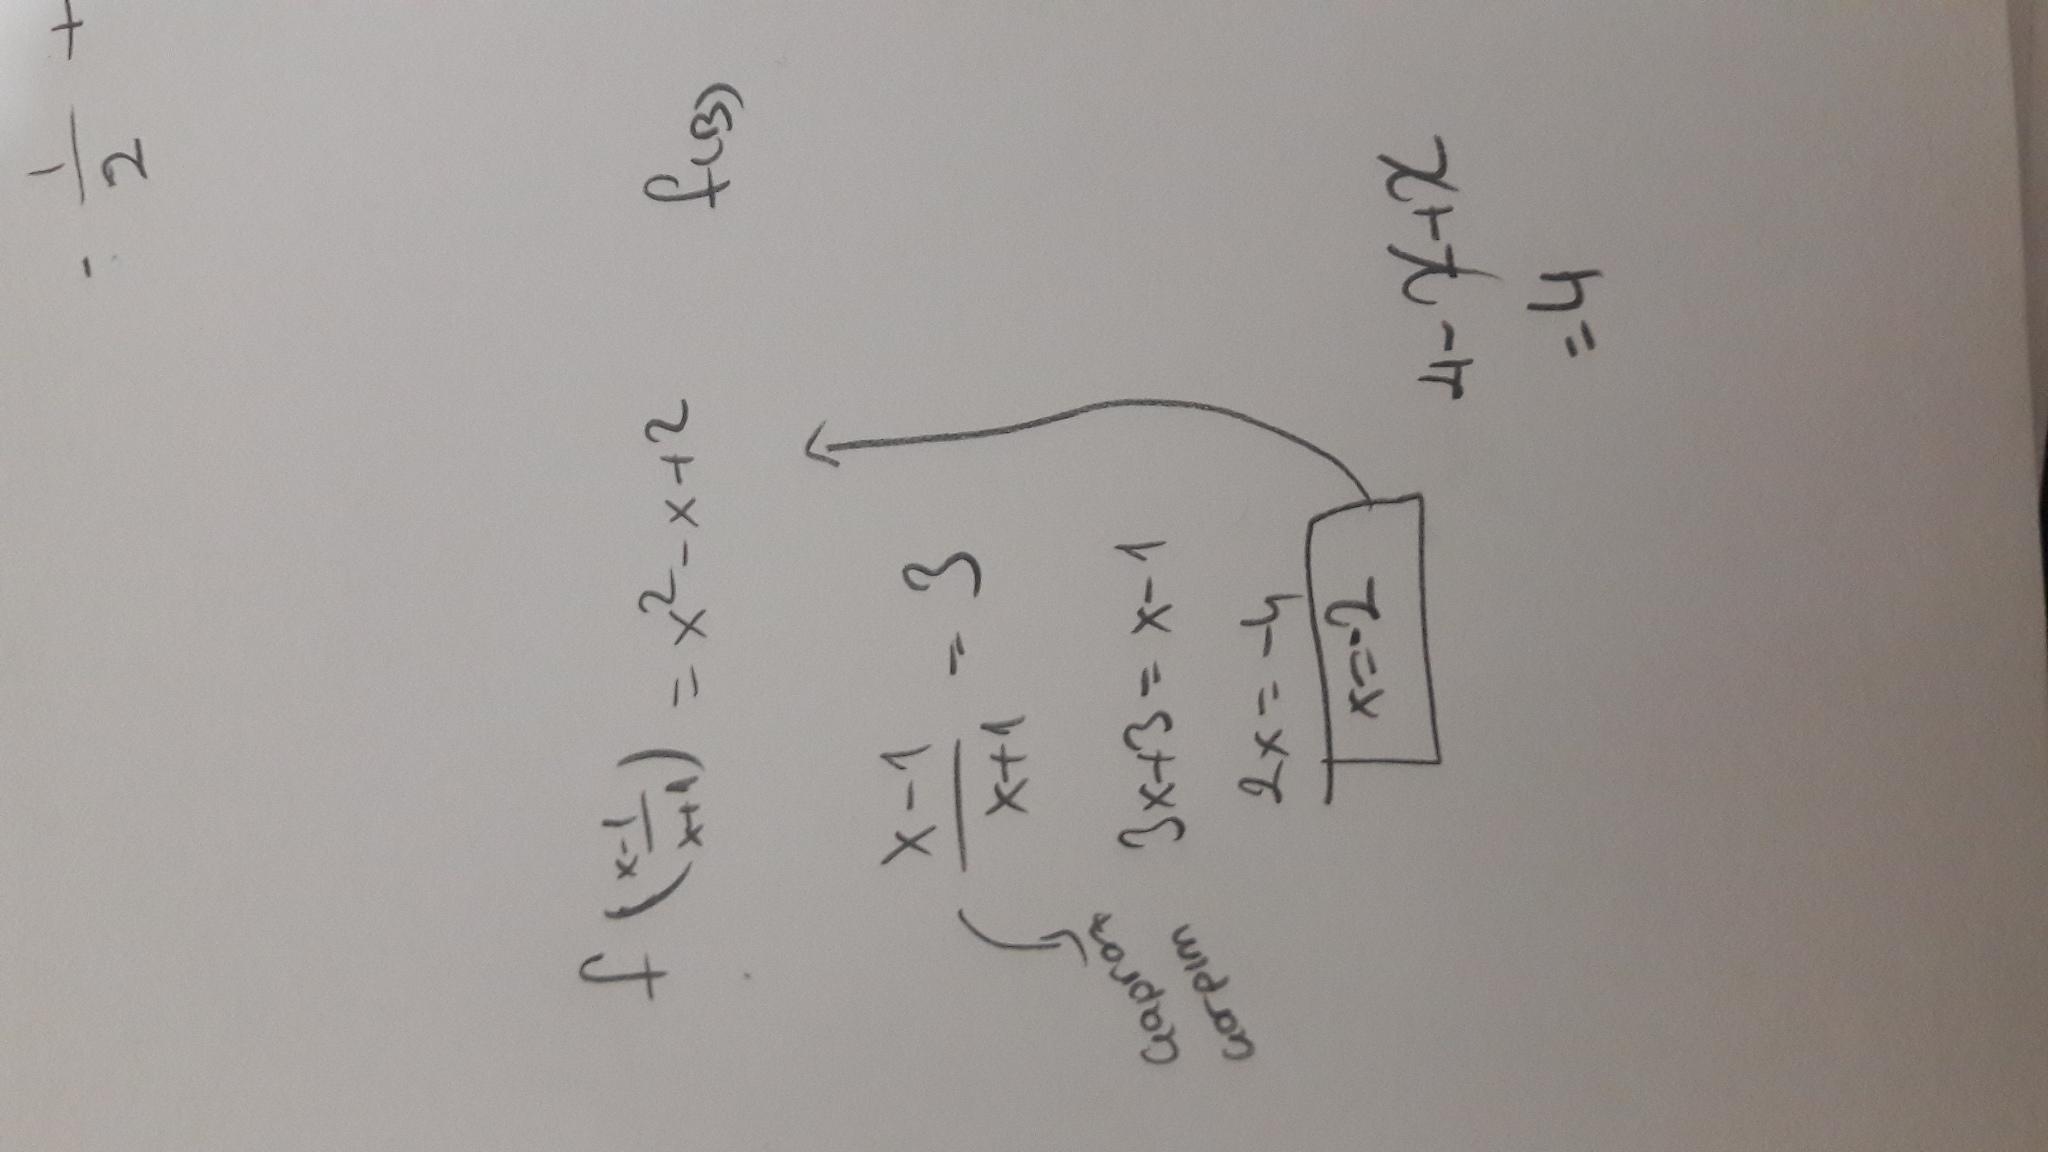 - 1/2 +
f((x-1)/(x+1)) = x² - x + 2 f(3)
(x-1)/(x+1) = 3
çapraz
çarpım
3x+3 = x-1
2x = -4
x = -2
= 4